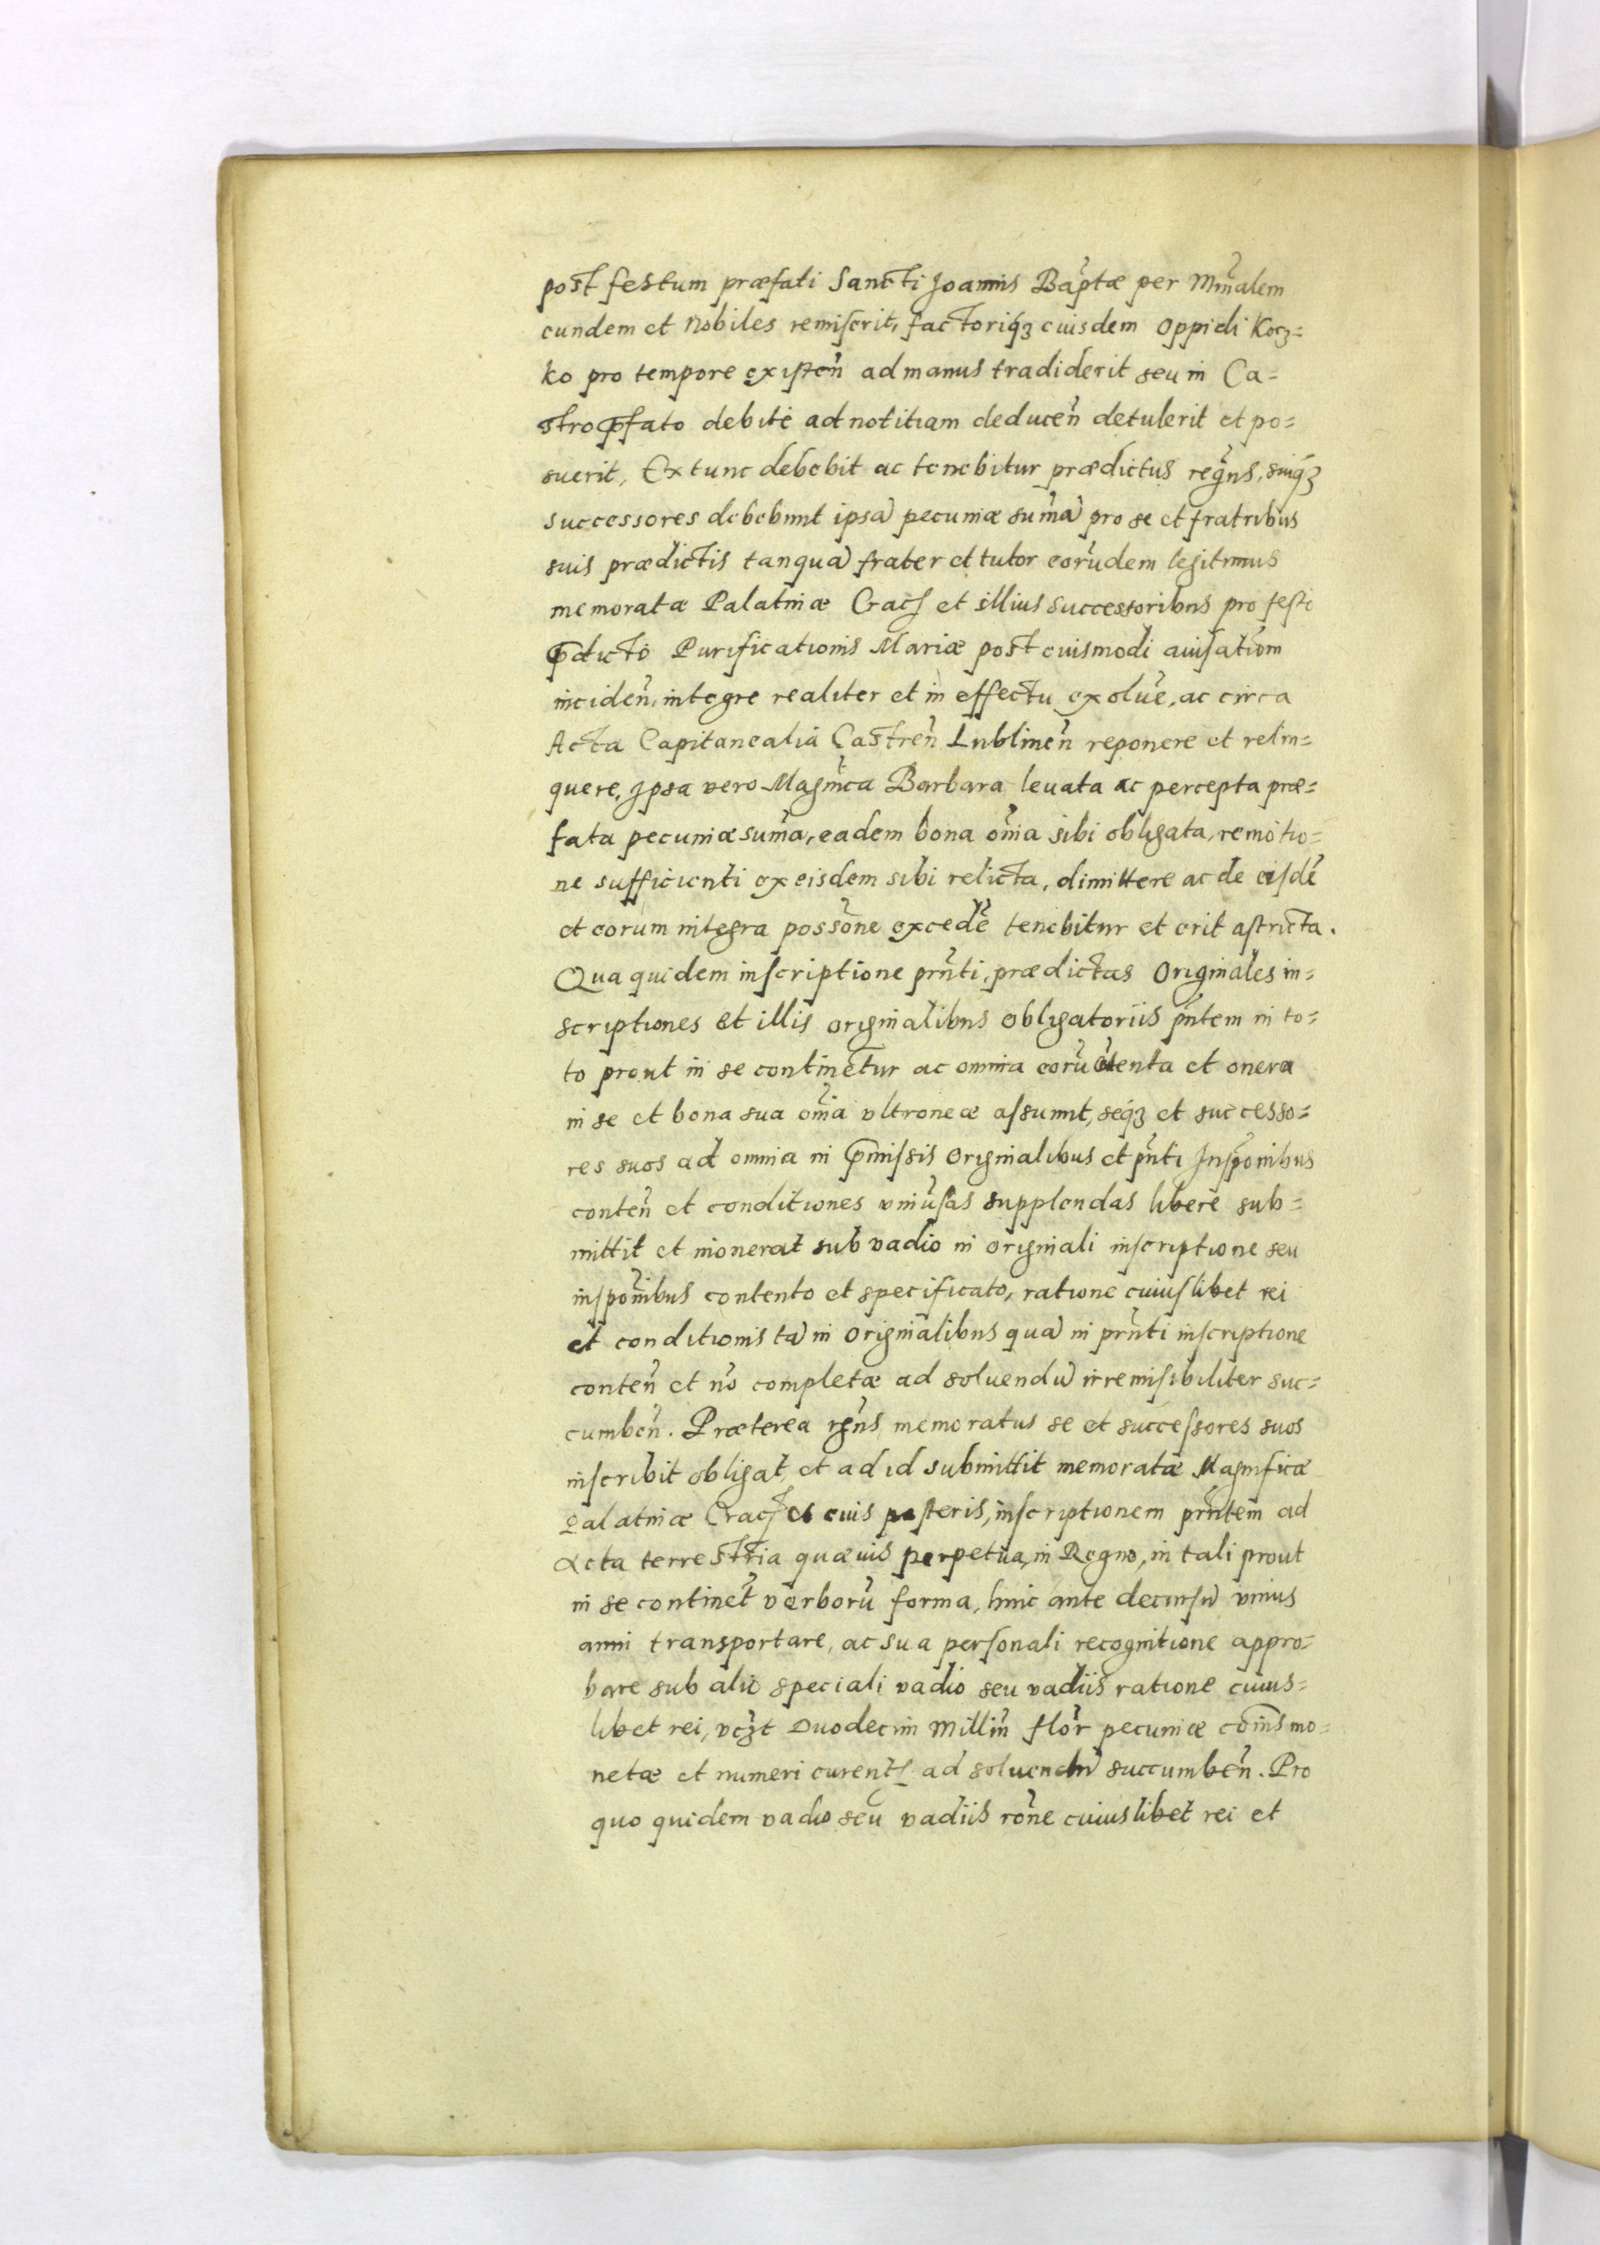 post festum præfati Sancti Joannis Baptæ per Mmalem
eundem et Nobiles remiserit, factoriqz eiusdem Oppidi Kocz=
ko pro tempore existen̄ ad manus tradiderit seu in Ca=
stro p̄fato debite ad notitiam deducen̄ detulerit et po=
suerit, Extunc debebit ac tenebitur prædictus regn̄s, suiqz
successores debebunt ipsā pecuniæ sum̄ā pro se et fratribus
suis prædictis tanquā frater et tutor eorūdem legitimus
memoratæ Palatinæ Crac̄ et illius successoribus pro festo
p̄dicto Purificationis Mariæ post eiusmodi auisatiom
inciden̄, integre realiter et in effectu exolūe, ac circa
Acta Capitanealia Castren̄ Lublinen̄ reponere et relin=
quere, Ipsa vero Magn̄ca Barbara leuata ac percepta præ=
fata pecuniæ sum̄a, eadem bona om̄ia sibi obligata, remotio=
ne sufficienti ex eisdem sibi relicta, dimittere ac de eisdē
et eorum integra possōne excedē tenebitur et erit astricta.
Qua quidem inscriptione prn̄ti, prædictas Originales in=
scriptiones et illis originalibus obligatoriis pn̄tem in to=
to prout in se continetur ac omnia eorū etenta et onera
in se et bona sua om̄ia vltroneæ assumit, seqz et successo=
res suos ad omnia in p̄missis Originalibus et pn̄ti Insp̄onibus
conten̄ et conditiones vniūsas supplendas libere sub=
mittit et inonerat sub vadio in originali inscriptione seu
insponibus contento et specificato, ratione cuiuslibet rei
et conditionis tā in Originalibus quā in prn̄ti inscriptione
conten̄ et nō completæ ad soluendū irremisibiliter suc=
cumben̄. Præterea rgn̄s memoratus se et successores suos
inscribit obligat, et ad id submittit memoratæ Magnificæ
Palatinæ Crac̄ et eius posteris, inscriptionem prn̄tem ad
Acta terrestria quæuis perpetua, in Regno, in tali prout
in se continet̄ verborū forma, hinc ante decursū vnius
anni transportare, ac sua personali recognitione appro=
bare sub alio speciali vadio seu vadiis ratione cuius=
libet rei, vczt Duodecim Millin̄ flōr pecuniæ com̄is mo=
netæ et numeri curent̄ ad soluendū succumben̄. Pro
quo quidem vadio seu vadiis rōne cuiuslibet rei et